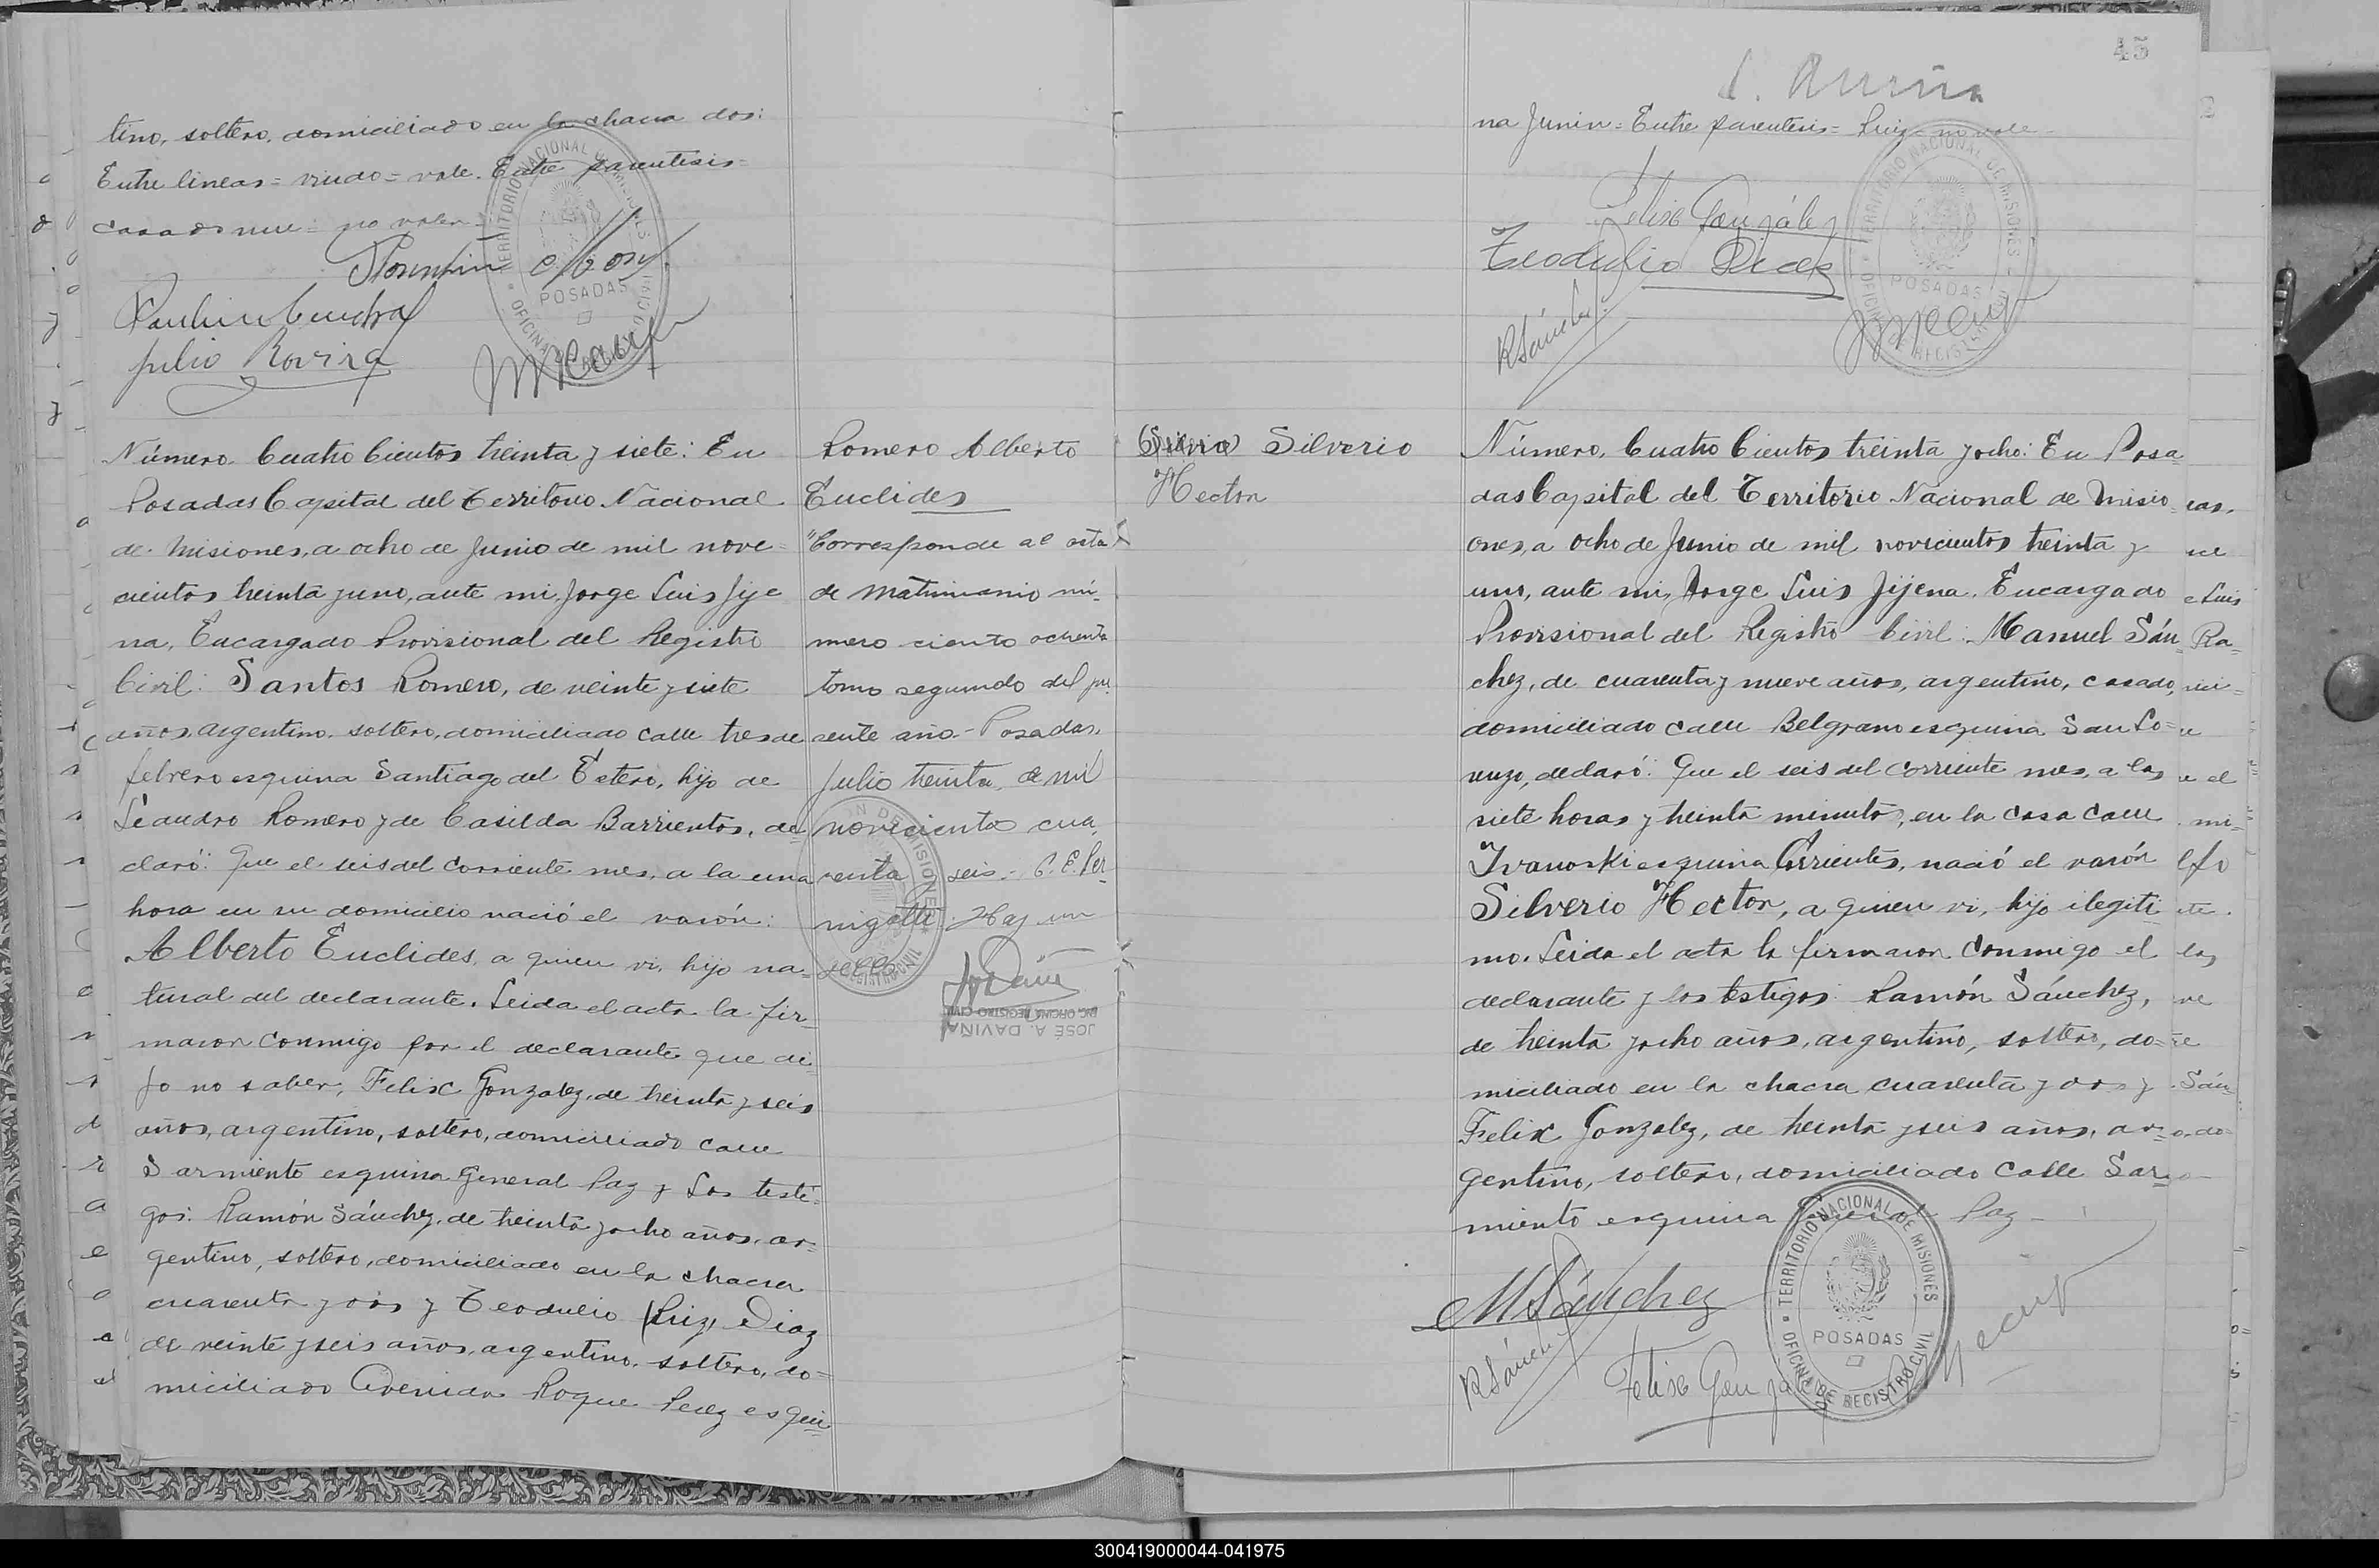 tino, soltero, domiciliado en la chacra dos:
Entre lineas = viudo = vale. Entre parentesis =
casado nue = no valen
Paulino
Julio Rovira
Número Cuatro Cientos treinta y siete: En
Posadas Capital del Territorio Nacional
de Misiones, a ocho de Junio de mil nove=
cientos treinta y uno, ante mi, Jorge Luis Jije
na, Encargado Provisional del Registro
Civil: Santos Romero, de veinte y siete
años, argentino, soltero, domiciliado calle tres de
febrero esquina Santiago del Estero, hijo de
Leandro Romero y de Casilda Barrientos, de
claró: Que el seis del corriente mes, a la una
hora en su domicilio nació el varón:
Alberto Euclides, a quien vi, hijo na=
tural del declarante. Leida el acta la fir=
maron conmigo por el declarante que di
jo no saber, Felix Gonzalez, de treinta y seis
años, argentino, soltero, domiciliado calle
Sarmiento esquina General Paz y los testi=
gos: Ramón Sánchez, de treinta y ocho años, ar=
gentino, soltero, domiciliado en la chacra
cuarenta y dos y Teodulio (Ruiz) Diaz
de veinte y seis años, argentino, soltero, do=
miciliado Avenida Roque Perez esqui=
Romero Alberto
Euclides
"Corresponde al acta
de Matrimonio nú-
mero ciento ochenta
tomo segundo del pre
sente año - Posadas,
Julio treinta, de mil
novecientos cua,
renta y seis.- C. E. Per-
nigotti. Hay un
sello
JOSÉ A. DAVIÑA
ENC. OFICINA REGISTRO CIVIL
45
na Junin = Entre parentesis = Ruiz = no vale
Felix González
Teodulio Diaz
RSánchez
Silverio
Hector
Número, Cuatro Cientos treinta y ocho: En Posa
das Capital del Territorio Nacional de Misio=
ones, a ocho de Junio de mil novecientos treinta y
uno, ante mi, Jorge Luis Jijena, Encargado
Provisional del Registro Civil: Manuel Sán
chez, de cuarenta y nueve años, argentino, casado,
domiciliado calle Belgrano esquina San Lo=
renzo, declaró: Que el seis del corriente mes, a las
siete horas y treinta minutos, en la casa calle
Ivanoski esquina Corrientes, nació el varón
Silverio Hector, a quien vi, hijo ilegiti
mo. Leida el acta la firmaron conmigo el
declarante y los testigos: Ramón Sánchez,
de treinta y ocho años, argentino, soltero, do=
miciliado en la chacra cuarenta y dos y
Felix Gonzalez, de treinta y seis años, ar=
gentino, soltero, domiciliado calle Sar=
miento esquina General Paz -
MSánchez
RSánchez
Felix González
TERRITORIO NACIONAL DE MISIONES
POSADAS
OFICINA DE REGISTRO CIVIL
300419000044-041975